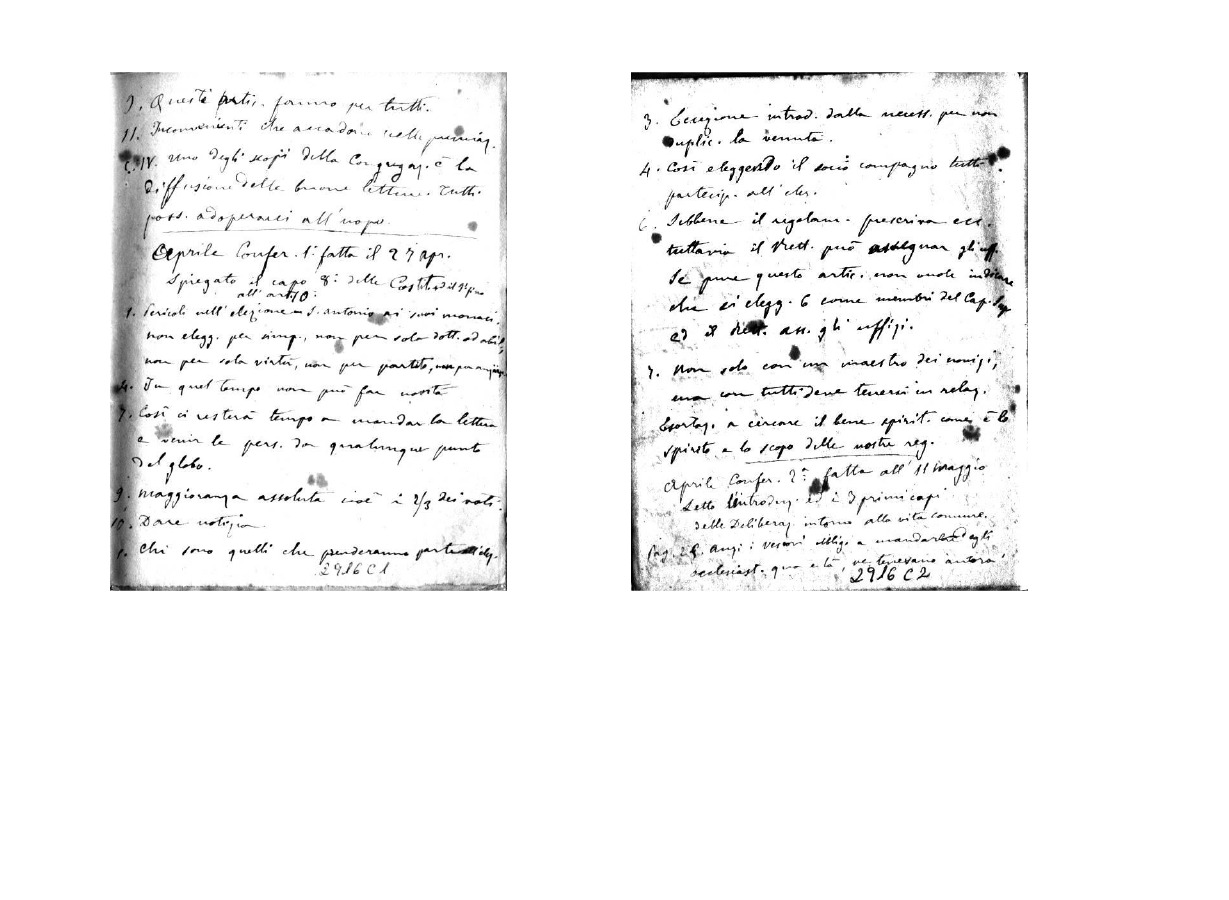 9. Questi artic. fanno per tutti.
11. Inconvenienti che accadono nelle
C. IV. Uno degli scopi della Congregaz. è la
diffusione delle buone letture. Tutti
poss. adoperarci all'uopo.
Aprile Confer. 1ª fatta il 27 apr.
Spiegato il capo 8º delle Costit.
all'art. 10.
1. Pericoli nell'elezione. S. Antonio ai suoi monaci.
non elegg. per simp., non per sola dott. od abil.,
non per sola virtù, non per partito,
4. In quel tempo non può far novità
7. Così ci resterà tempo a mandar la lettera
e venir le pers. da qualunque punto
del globo.
9. Maggioranza assoluta cioè i 2/3 dei voti.
10. Dare notizia.
1. Chi sono quelli che prenderanno parte
2916 C 1
3. Eccezione introd. dalla necess. per non
duplic. la venuta.
4. Così eleggendo il socio compagno tutti
partecip. all'elez.
6. Sebbene il regolam. prescriva ecc.
tuttavia il Rett. può assegnar gli uff.
Se pure questo artic. non vuole indicare
che si elegg. 6 come membri del Cap. Sup.
ed il Rett. ass. gli uffizi.
7. Non solo con un maestro dei novizi,
ma con tutti deve tenersi in relaz.
Esortaz. a cercare il bene spirit. come è lo
spirito e lo scopo delle nostre reg.
Aprile Confer. 2ª fatta all'11 Maggio
Letto l'introduz. ed i 3 primi capi
delle Deliberaz. intorno alla vita comune.
Pag. 28. anzi i vescovi obblig. a mandar degli
ecclesiast. qua e là, ne tenevano ancora
2916 C 2